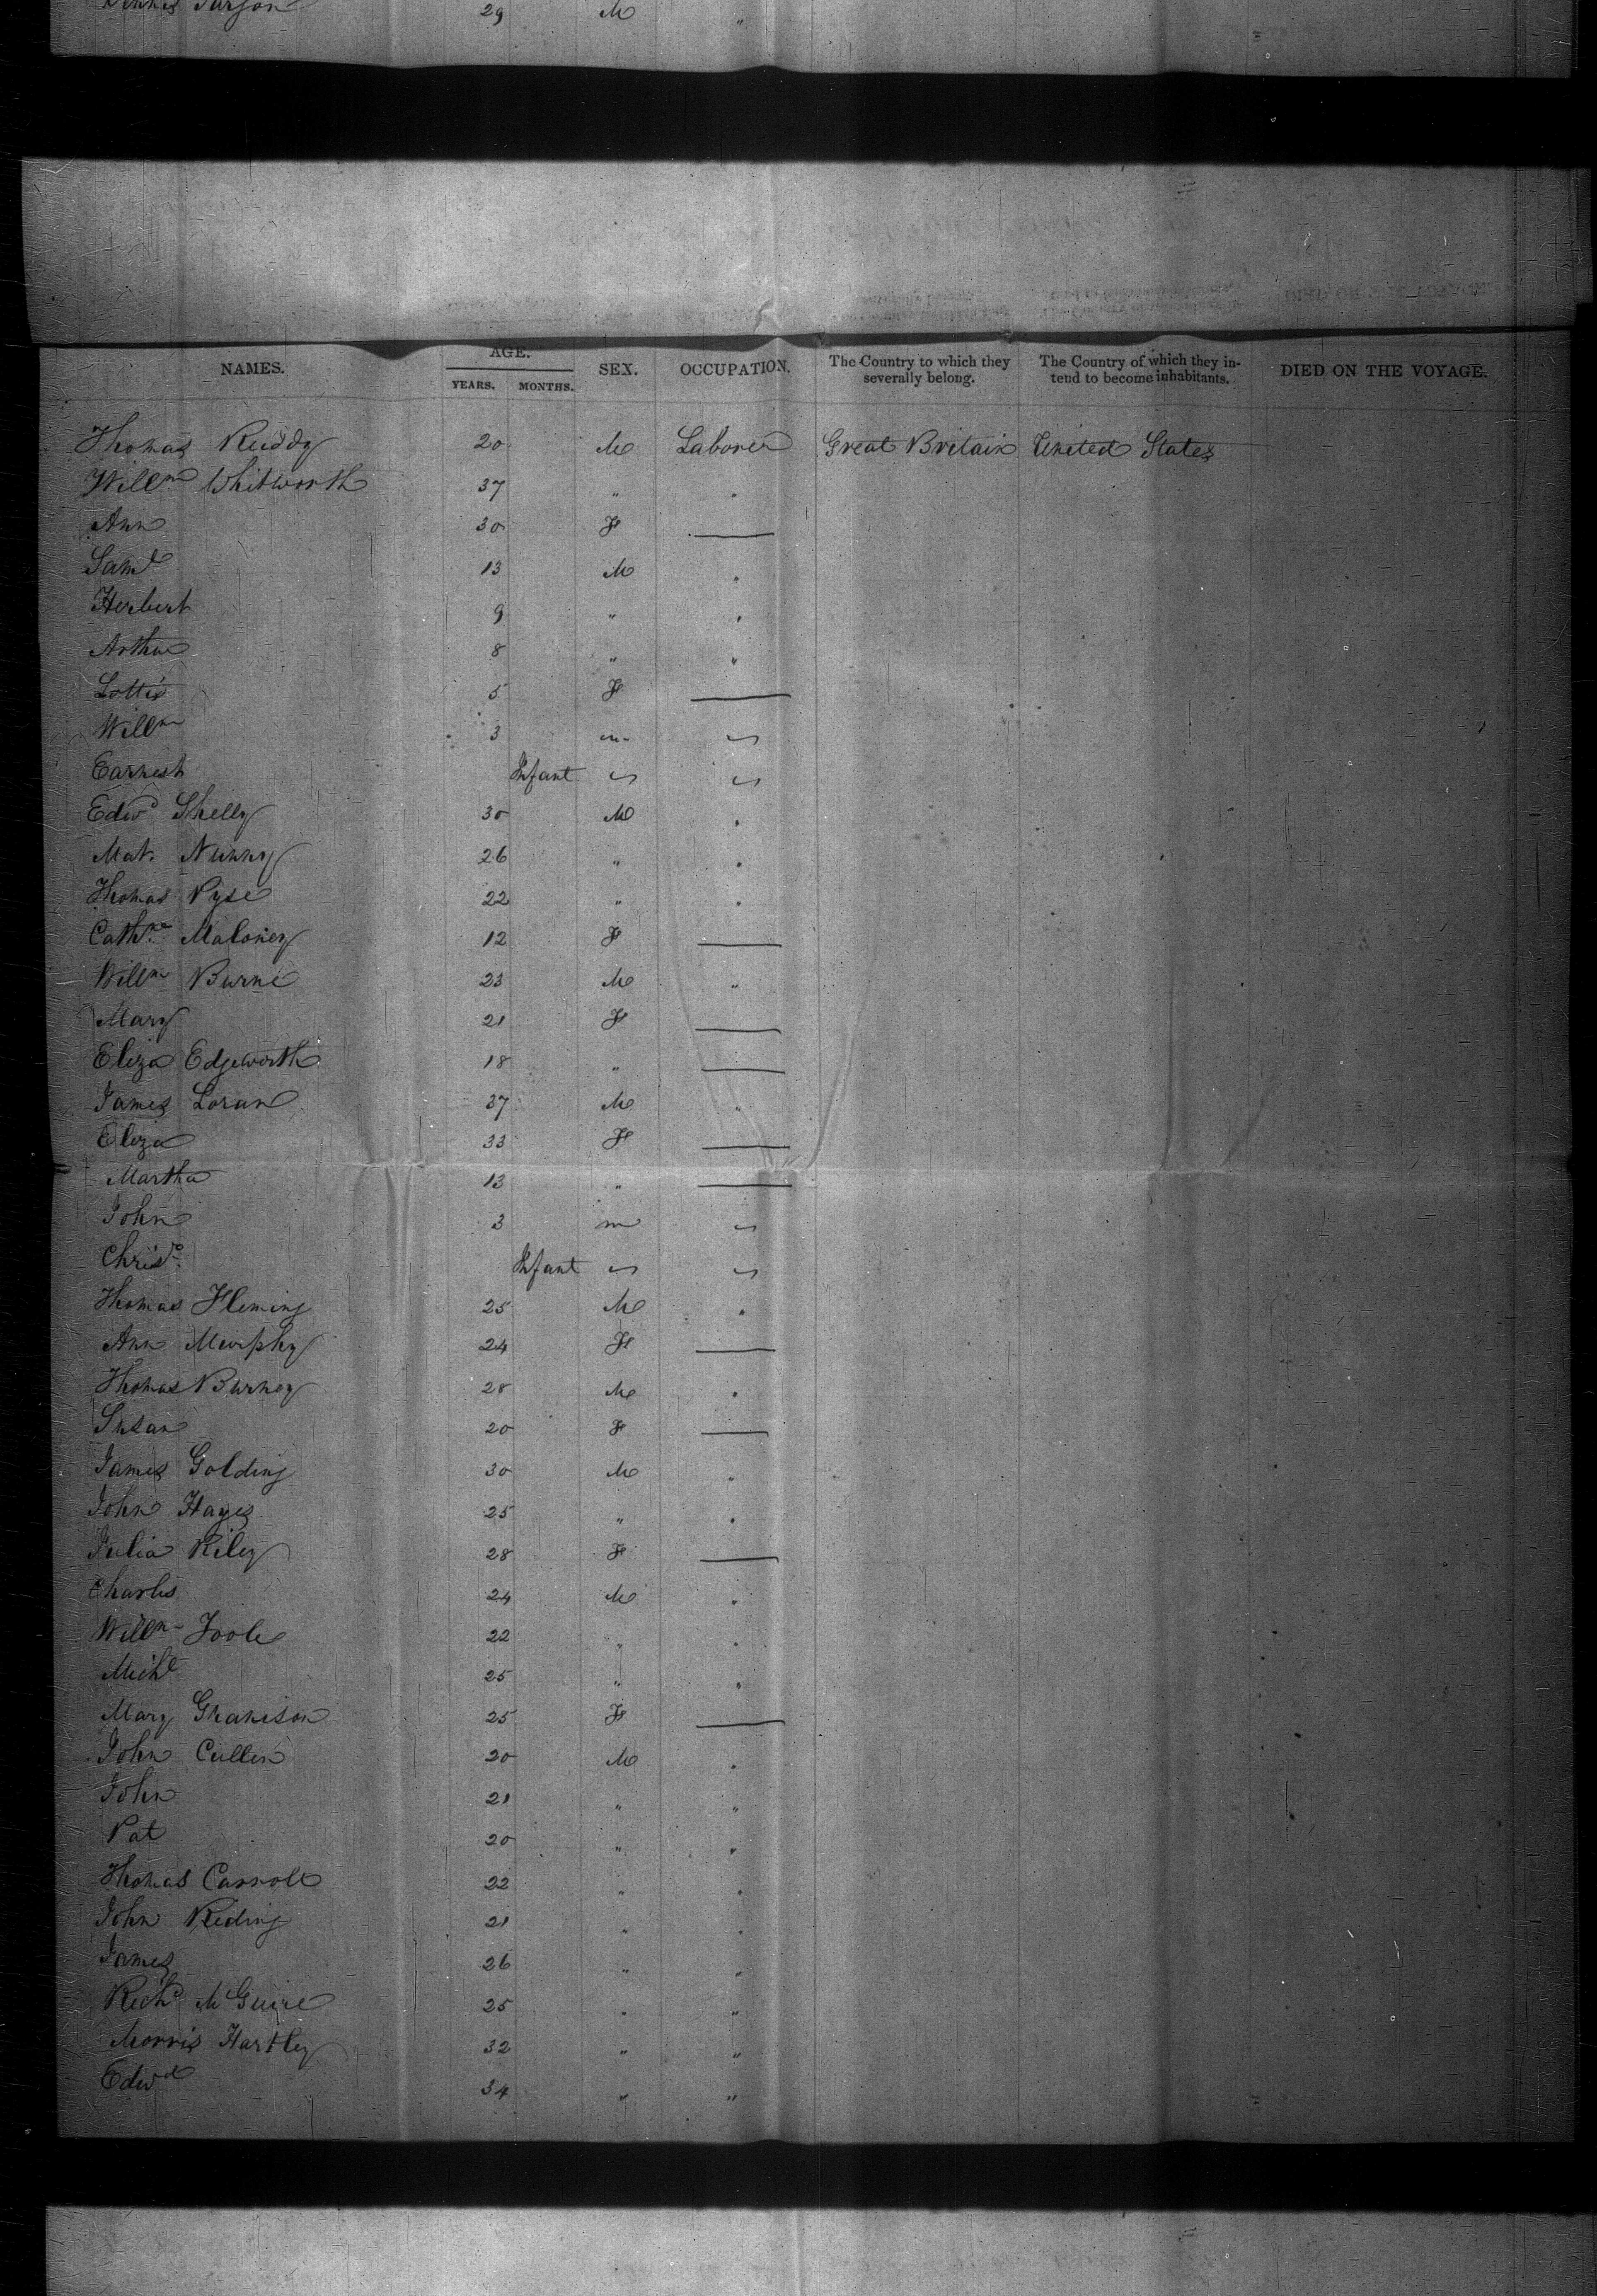 29 M "
NAMES. AGE. YEARS. MONTHS. SEX. OCCUPATION. The Country to which they severally belong. The Country of which they intend to become inhabitants. DIED ON THE VOYAGE.
Thomas Ruddy 20 M Laborer Great Britain United States
Willm Whitworth 37 " "
Ann 30 F —
Saml 13 M "
Herbert 9 " "
Arthur 8 " "
Lottie 5 F —
Willm 3 m "
Earnest Infant " "
Edwd Shelly 30 M "
Mat. Nunny 26 " "
Thomas Pyse 22 " "
Cathne Maloney 12 F —
Willm Burne 23 M "
Mary 21 F —
Eliza Edgeworth 18 " —
James Loran 37 M "
Eliza 33 F —
Martha 13 " —
John 3 m "
Chrisr Infant " "
Thomas Fleming 25 M "
Ann Murphy 24 F —
Thomas Burney 28 M "
Susan 20 F —
James Golding 30 M "
John Hayes 25 " "
Julia Riley 28 F —
Charles 24 M "
Willm Toole 22 " "
Michl 25 " "
Mary Granison 25 F —
John Cullen 20 M "
John 21 " "
Pat 20 " "
Thomas Carroll 22 " "
John Reding 21 " "
James 26 " "
Richd McGuire 25 " "
Morris Hartley 32 " "
Edwd 34 " "